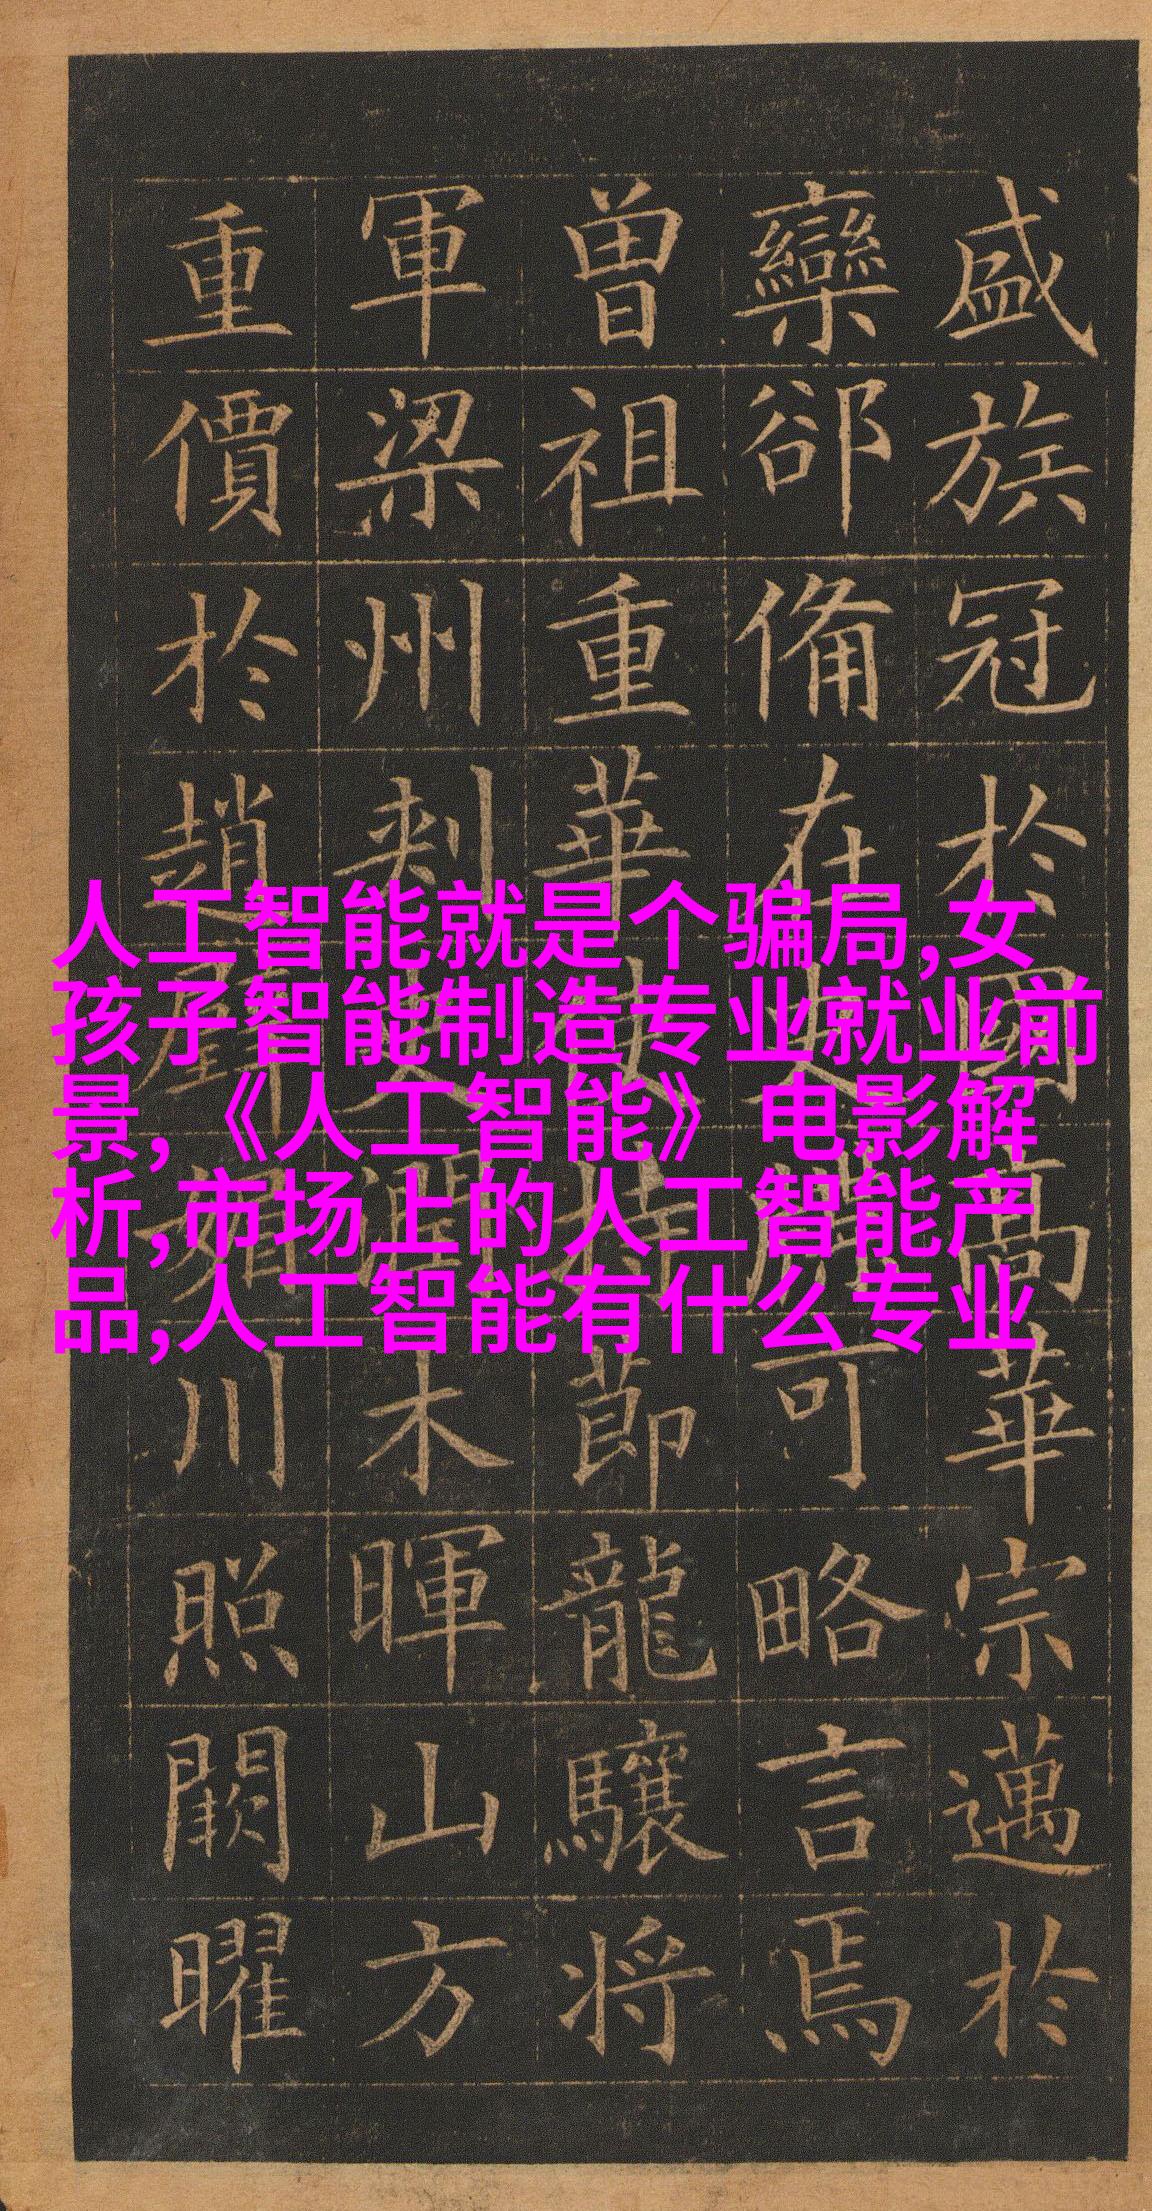 盛族冠於國高華宗邁於
欒郤備在史牒可略言焉
曽祖重華使持節龍驤将
軍梁州刺史選木暉山方
重價於趙璧媚川照闕曜
人工智能就是个骗局,女
孩子智能制造专业就业前
景,《人工智能》电影解
析,市场上的人工智能产
品,人工智能有什么专业